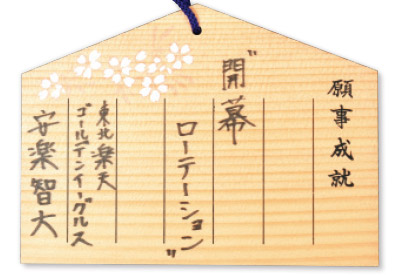 願事成就
"開幕
ローテーション"
東北楽天
ゴールデンイーグルス
安楽智大